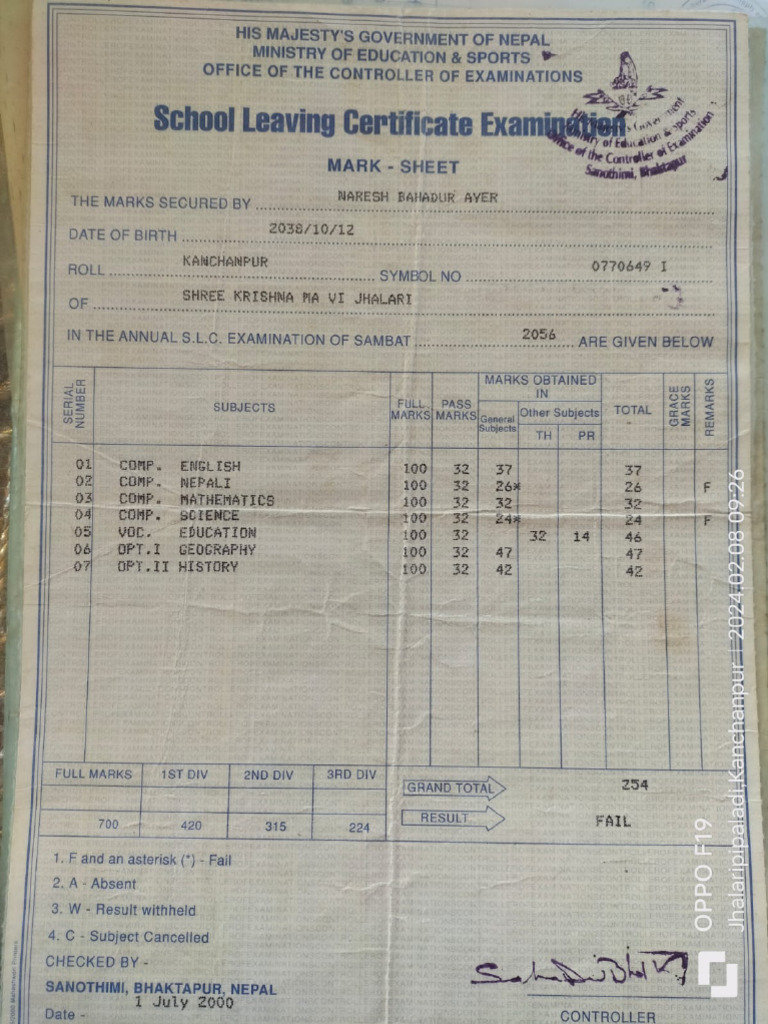 HIS MAJESTY'S GOVERNMENT OF NEPAL
MINISTRY OF EDUCATION & SPORTS
OFFICE OF THE CONTROLLER OF EXAMINATIONS
School Leaving Certificate Examination
Government
Ministry of Education & Sports
Office of the Controller of Examination
Sanothimi, Bhaktapur
MARK - SHEET
THE MARKS SECURED BY NARESH BAHADUR AYER
DATE OF BIRTH 2038/10/12
ROLL KANCHANPUR SYMBOL NO 0770649 I
OF SHREE KRISHNA MA VI JHALARI
IN THE ANNUAL S.L.C. EXAMINATION OF SAMBAT 2056 ARE GIVEN BELOW
SERIAL NUMBER SUBJECTS FULL MARKS PASS MARKS MARKS OBTAINED IN TOTAL GRACE MARKS REMARKS
General Subjects Other Subjects
TH PR
01 COMP. ENGLISH 100 32 37 37
02 COMP. NEPALI 100 32 26* 26 F
03 COMP. MATHEMATICS 100 32 32 32
04 COMP. SCIENCE 100 32 24* 24 F
05 VOC. EDUCATION 100 32 32 14 46
06 OPT.I GEOGRAPHY 100 32 47 47
07 OPT.II HISTORY 100 32 42 42
FULL MARKS 1ST DIV 2ND DIV 3RD DIV
700 420 315 224
GRAND TOTAL 254
RESULT FAIL
1. F and an asterisk (*) - Fail
2. A - Absent
3. W - Result withheld
4. C - Subject Cancelled
CHECKED BY -
SANOTHIMI, BHAKTAPUR, NEPAL
Date - 1 July 2000
CONTROLLER
OPPO F19
Jhalaripipaladi,Kanchanpur | 2024.02.08 09:26